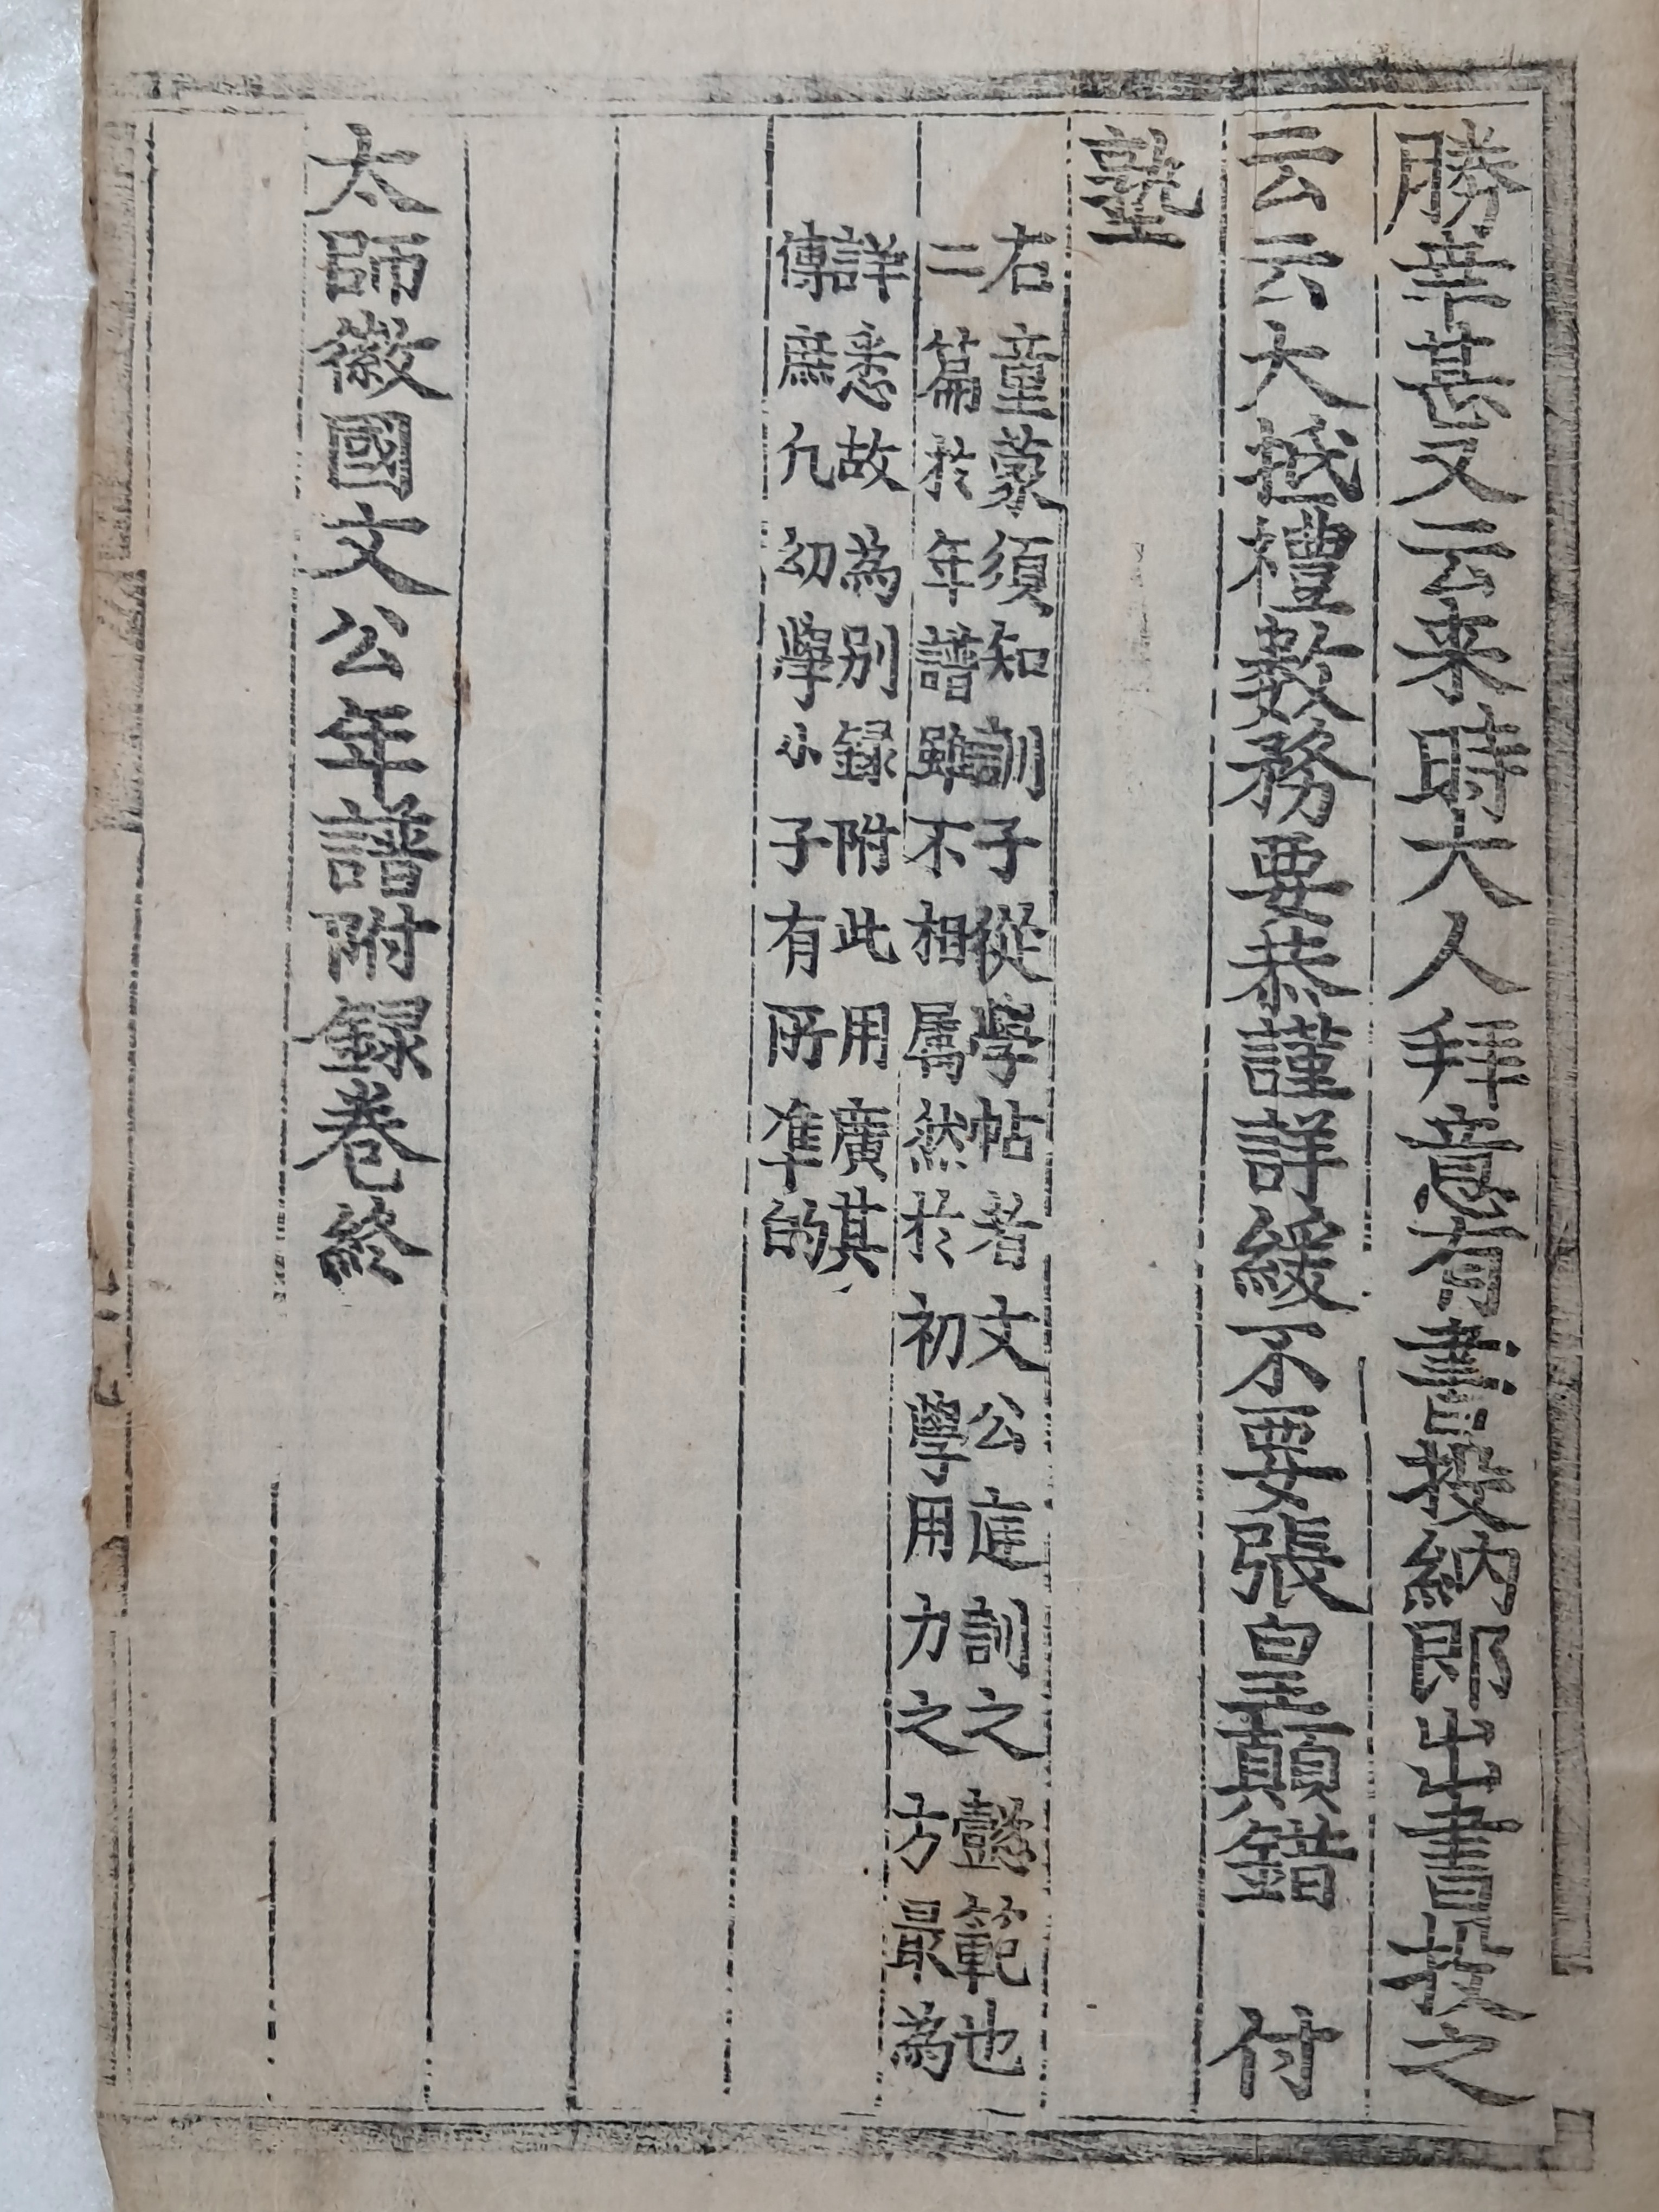 勝幸甚又云来時大人拜意有書投納即出書投之
云云大抵禮數務要恭謹詳緩不要張皇顚錯 付
塾
右童蒙須知訓子從學帖者文公庭訓之懿範也
二篇於年譜雖不相屬然於初學用力之方最為
詳悉故為別録附此用廣其
傳庶几初學小子有所准的
太師徽國文公年譜附錄卷終